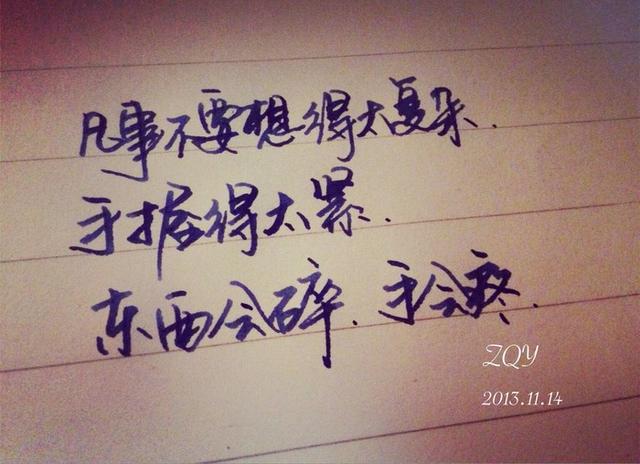 凡事不要想得太复杂.
手握得太紧.
东西会碎.手会疼.
ZQY
2013.11.14